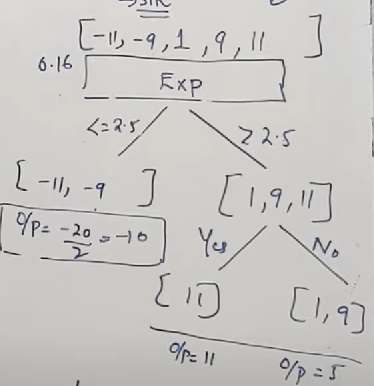 [-11, -9, 1, 9, 11 ]
0.16
Exp
<=2.5 ≥ 2.5
[ -11, -9 ] [1, 9, 11]
O/P = -20/2 = -10
Yes No
[ 11] [1, 9]
O/P= 11 O/P = 5